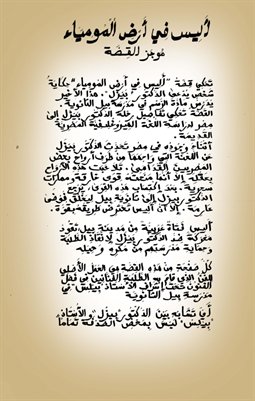 أليس في أرض المومياء
موجز القصة
تحكي قصة "أليس في أرض المومياء" حكاية
شخص يدعى الدكتور "بيزل". هذا الأخير
يدرس مادة الرسم في مدرسة بيل الثانوية
القصة تحكي تفاصيل رحلة الدكتور بيزل إلى
مصر لدراسة اللغة الهيروغليفية المصرية
القديمة.
أثناء وجوده في مصر تحدى الدكتور بيزل
عن اللعنة التي وا جهها من طرف أرواح بعض
المصريين القدامى. تلاحقت هذه الأرواح
إلا أنها منحته قوى خارقة، ممارسات
سحرية. بعد اكتساب هذه القوى، يرجع
الدكتور بيزل إلى ثانوية بيل ليخلق فوضى
عارمة. إلا أن أليس تعترض طريقه بقوة.
أليس فتاة عزيزة من مدينة بيل تقود
معركة ضد الدكتور بيزل لإنقاذ الطلبة
وحماية مدرستهم من مكره وحيله
كل صفحة من هذه القصة هي العمل الأصلي
الفني الذي قام به الطلبة الفنانين في فصل
الفنون تحت إشراف الأستاذ "بيتس" في
مدرسة بيل الثانوية
أي تشابه بين الدكتور "بيزل" والأستاذ
"بيتس" ليس بمحض الصدفة تماما